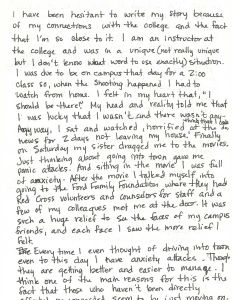 I have been hesitant to write my story because
of my connections with the college and the fact
that I'm so close to it. I am an instructor at
the college and was in a unique (not really unique
but I don't know what word to use exactly) situation.
I was due to be on campus that day for a 2:00
class so, when the shooting happened I had to
watch from home. I felt in my heart that, "I
should be there!" My head and reality told me that
I was lucky that I wasn't and there wasn't any-
thing that I could do
Any way, I sat and watched, horrified at the
news for 2 days not leaving my house. Finally
on Saturday my sister dragged me to the movies.
Just thinking about going into town gave me
panic attacks. And sitting in the movie I was full
of anxiety. After the movie I talked myself into
going to the Ford Family Foundation where they had
Red Cross volunteers and counselors for staff and a
few of my colleagues met me at the door. It was
such a huge relief to see the faces of my campus
friends, and each face I saw the more relief I
felt.
Every time I even thought of driving into town
even to this day I have anxiety attacks. Though
they are getting better and easier to manage. I
think one of the main reasons for this is the
fact that those who haven't been directly
by just moving on